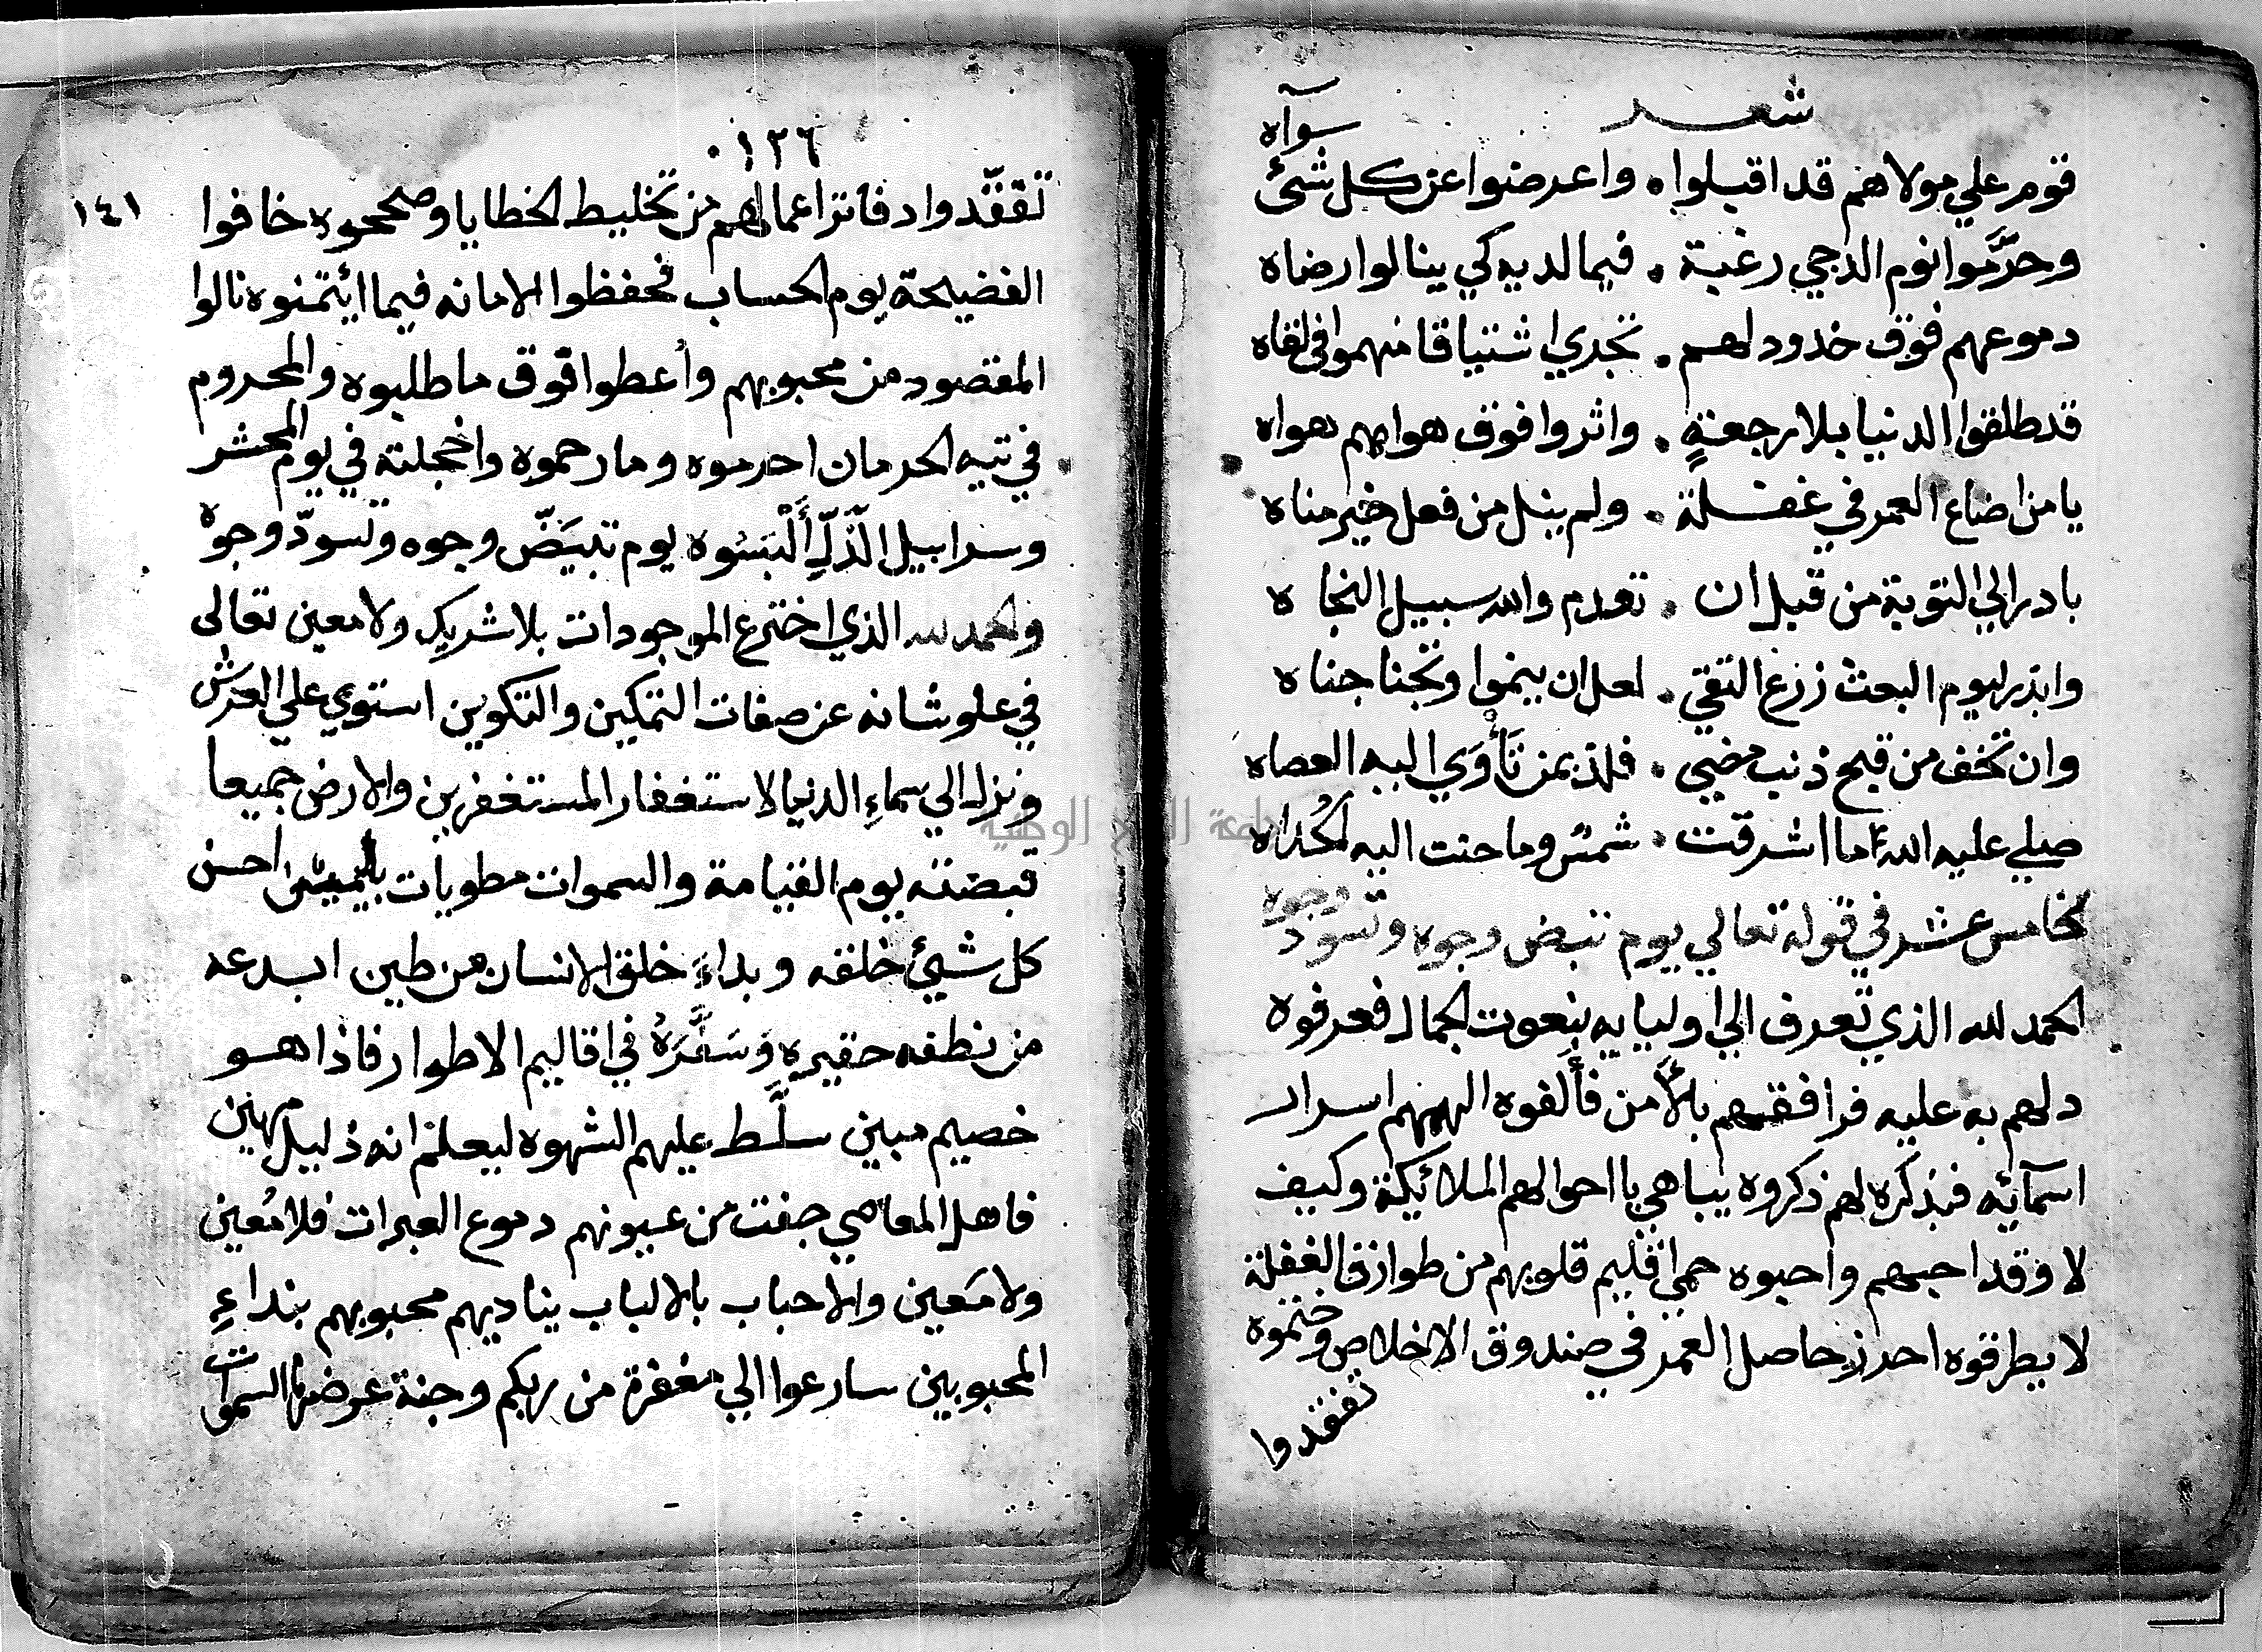 شعر
قوم علي مولاهم قد اقبلواه واعرضوا عن كل شئ سوآه
وحرَّموا نوم الدجي رغبة . فيما لديه كي ينالوا رضاه
دموعهم فوق خدود لهم . تجري اشتياقا منهموا في لقاه
قد طلقوا الدنيا بلا رجعةٍ . واثروا فوق هواهم هواه
يا من اضاع العمر في غفلة . ولم ينل من فعل خير مناه
بادر الي التوبة من قبل ان . تعدم والله سبيل النجاه
وابذر ليوم البعث زرع التقي . لعل ان ينموا وتجنا جناه
وان تخف من قبح ذنب مضي . فلذ بمن تأوي اليه العصاه
صلي عليه الله ما اشرقت . شمس وما حنت اليه الحُداه
لخامس عشر في قوله تعالي يوم تبيض وجوه وتسود وجوه
الحمد لله الذي تعرف الي اوليايه بنعوت الجمال فعرفوه
دلهم به عليه فرافقهم بالأمن فألفوه الهمهم اسرار
اسمآئه فبذكره لهم ذكروه يباهي با احوالهم الملائيكة وكيف
لا وقد احبهم واحبوه حمي اقليم قلوبهم من طوارق الغفلة
لا يطرقوه احرز حاصل العمر في صندوق الاخلاص وختموه
تفقدوا
١٢٦
١٤١
تفقّدوا دفاتر اعمالهم من تخليط الخطايا وصححوه خافوا
الفضيحة يوم الحساب فحفظوا الامانه فيما ائتمنوه نالوا
المقصود من محبوبهم وأعطوا فوق ما طلبوه والمحروم
في تيه الحرمان احرموه وما رحموه واخجلته في يوم المحشر
وسرابيل الذّلِّ أَلْبَسُوه يوم تبيَضّ وجوه وتسودّ وجوه
والحمد لله الذي اخترع الموجودات بلا شريك ولا معين تعالى
في علو شانه عن صفات التمكين والتكوين استوي علي العرش
ونزل الي سماءِ الدنيا لاستغفار المستغفرين والارض جميعا
قبضته يوم القيامة والسموات مطويات باليمين احسن
كل شيئ خلقه وبداءَ خلق الانسان من طين ابدعه
من نطفه حقيره وَسَفَّرَهُ في اقاليم الاطوار فاذا هو
خصيم مبين سلَّط عليهم الشهوه ليعلم انه ذليل مهين
فاهل المعاصي جفت من عيونهم دموع العبرات فلا مُعين
ولا مَعين والاحباب بالالباب يناديهم محبوبهم بنداءِ
المحبوبين سارعوا الي مغفرة من ربكم وجنة عرضها السموات